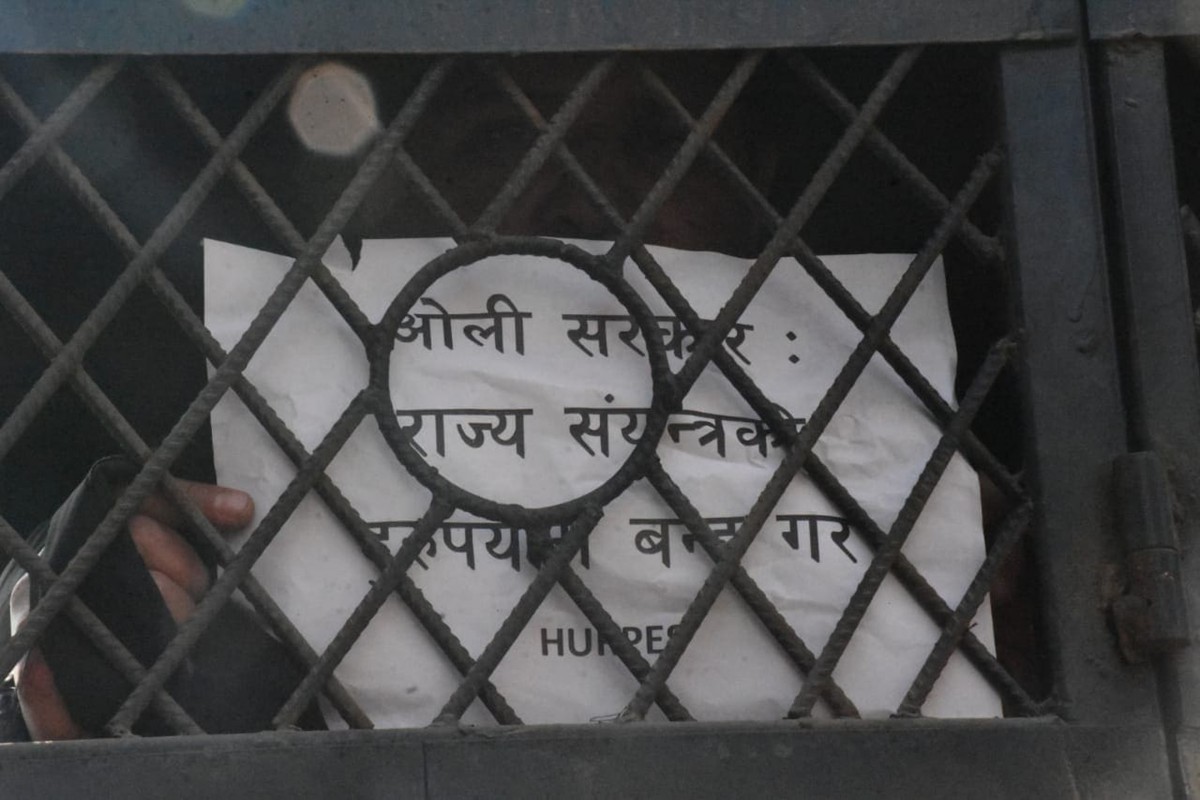 ओली सरकार :
राज्य संयन्त्रको
दुरुपयोग बन्द गर
HURPES